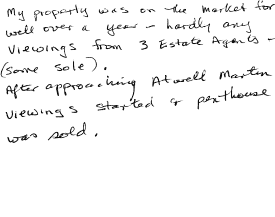 My property was on the market for
well over a year - hardly any
viewings from 3 Estate Agents -
(some sole).
After approaching Atwell Martin
viewings started & penthouse
was sold.